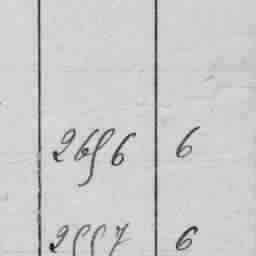 2656 6
2557 6